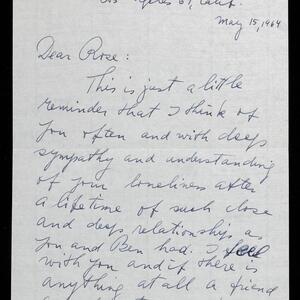 Los Angeles 61, Calif.
May 15, 1964
Dear Rose:
This is just a little
reminder that I think of
you often and with deep
sympathy and understanding
of your loneliness after
a lifetime of such close
and deep relationship as
you and Ben had. I feel
with you and if there is
anything at all a friend